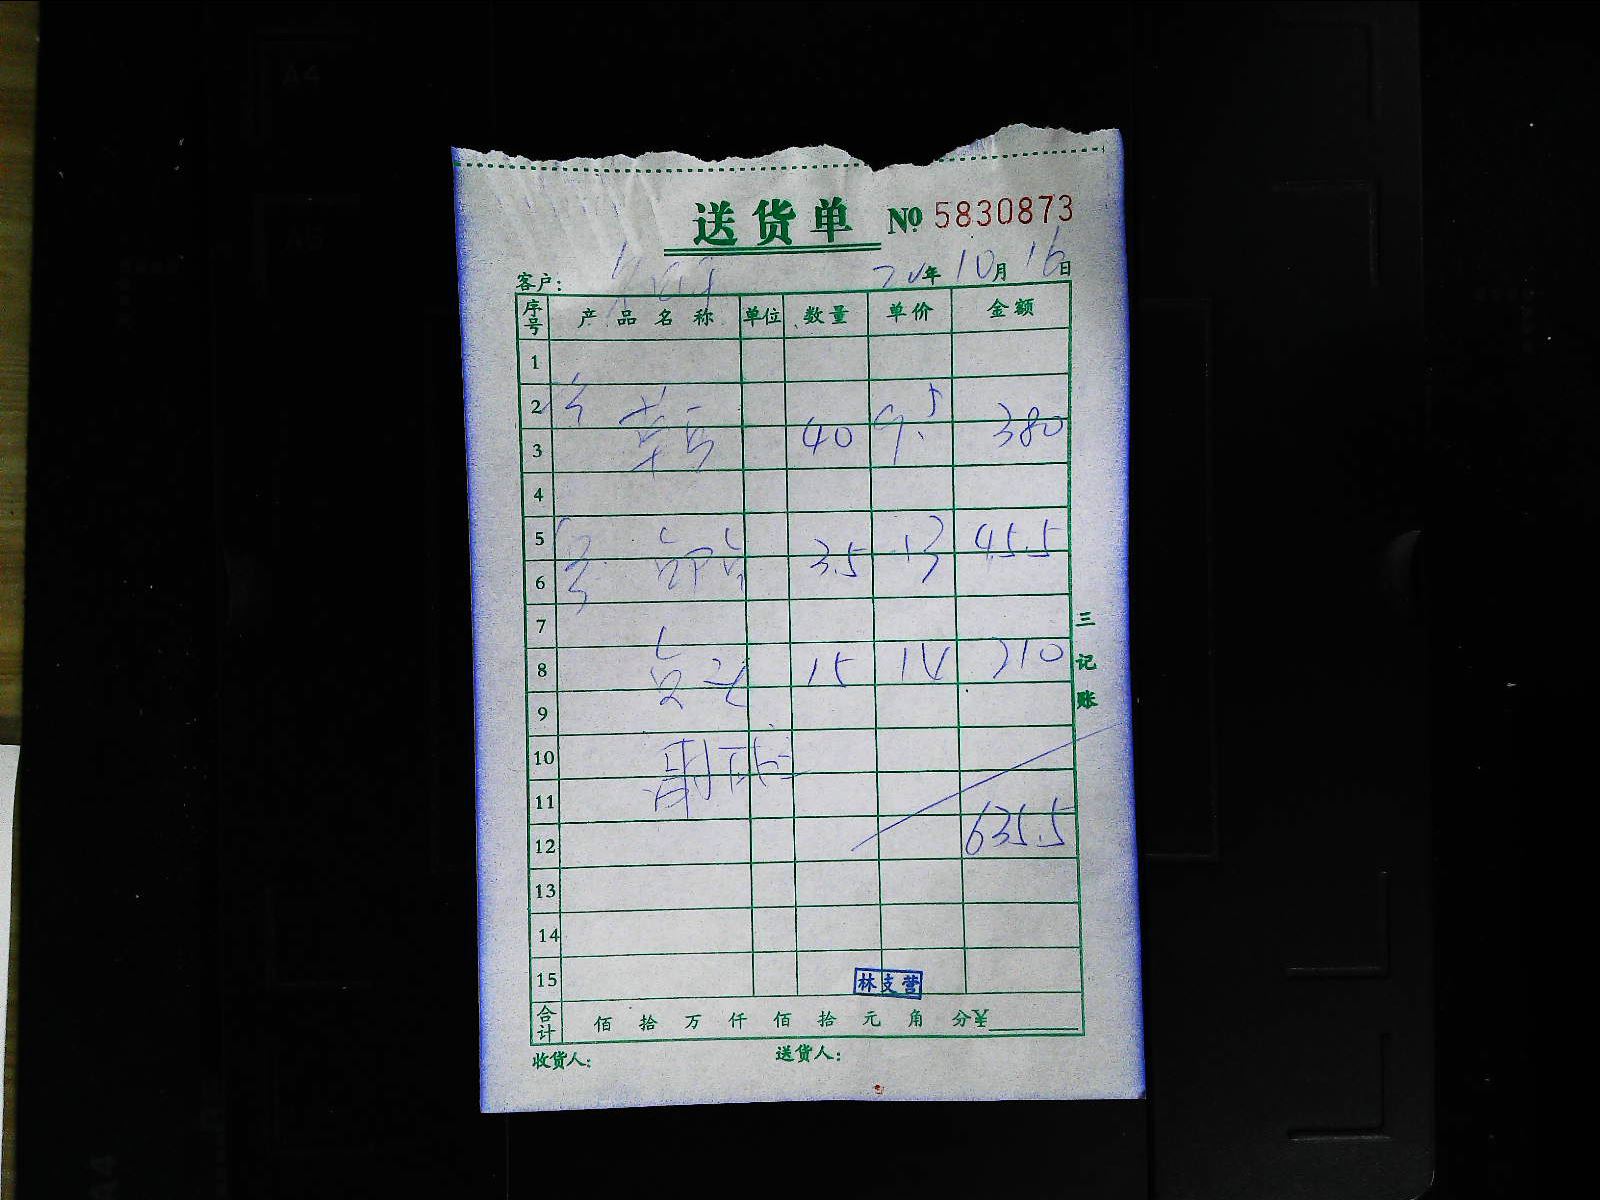 送货单 № 5830873
客户: 年 10月 16日
序号 产品名称 单位 数量 单价 金额
1
2
3 40 9.5 380
4
5
6 3.5 13 45.5
7
8 15 14 210
9
10
11
12 635.5
13
14
15
林支营
合计 佰 拾 万 仟 佰 拾 元 角 分¥
收货人: 送货人:
三记账